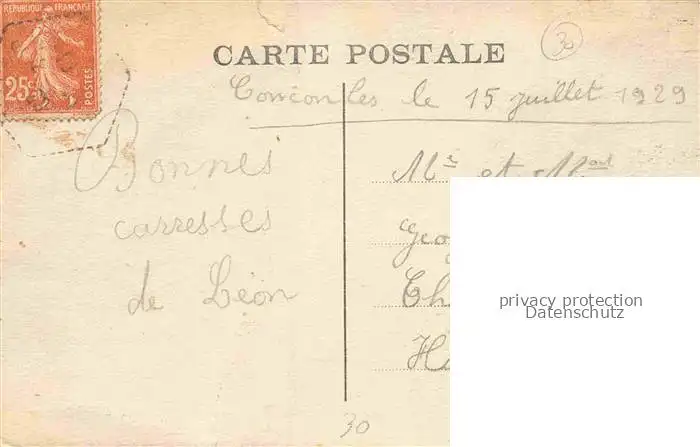 REPUBLIQUE FRANÇAISE
25c
POSTES
CARTE POSTALE
30
le 15 juillet 1929
Bonnes
carresses
de Léon
Mr et
privacy protection
Datenschutz
30